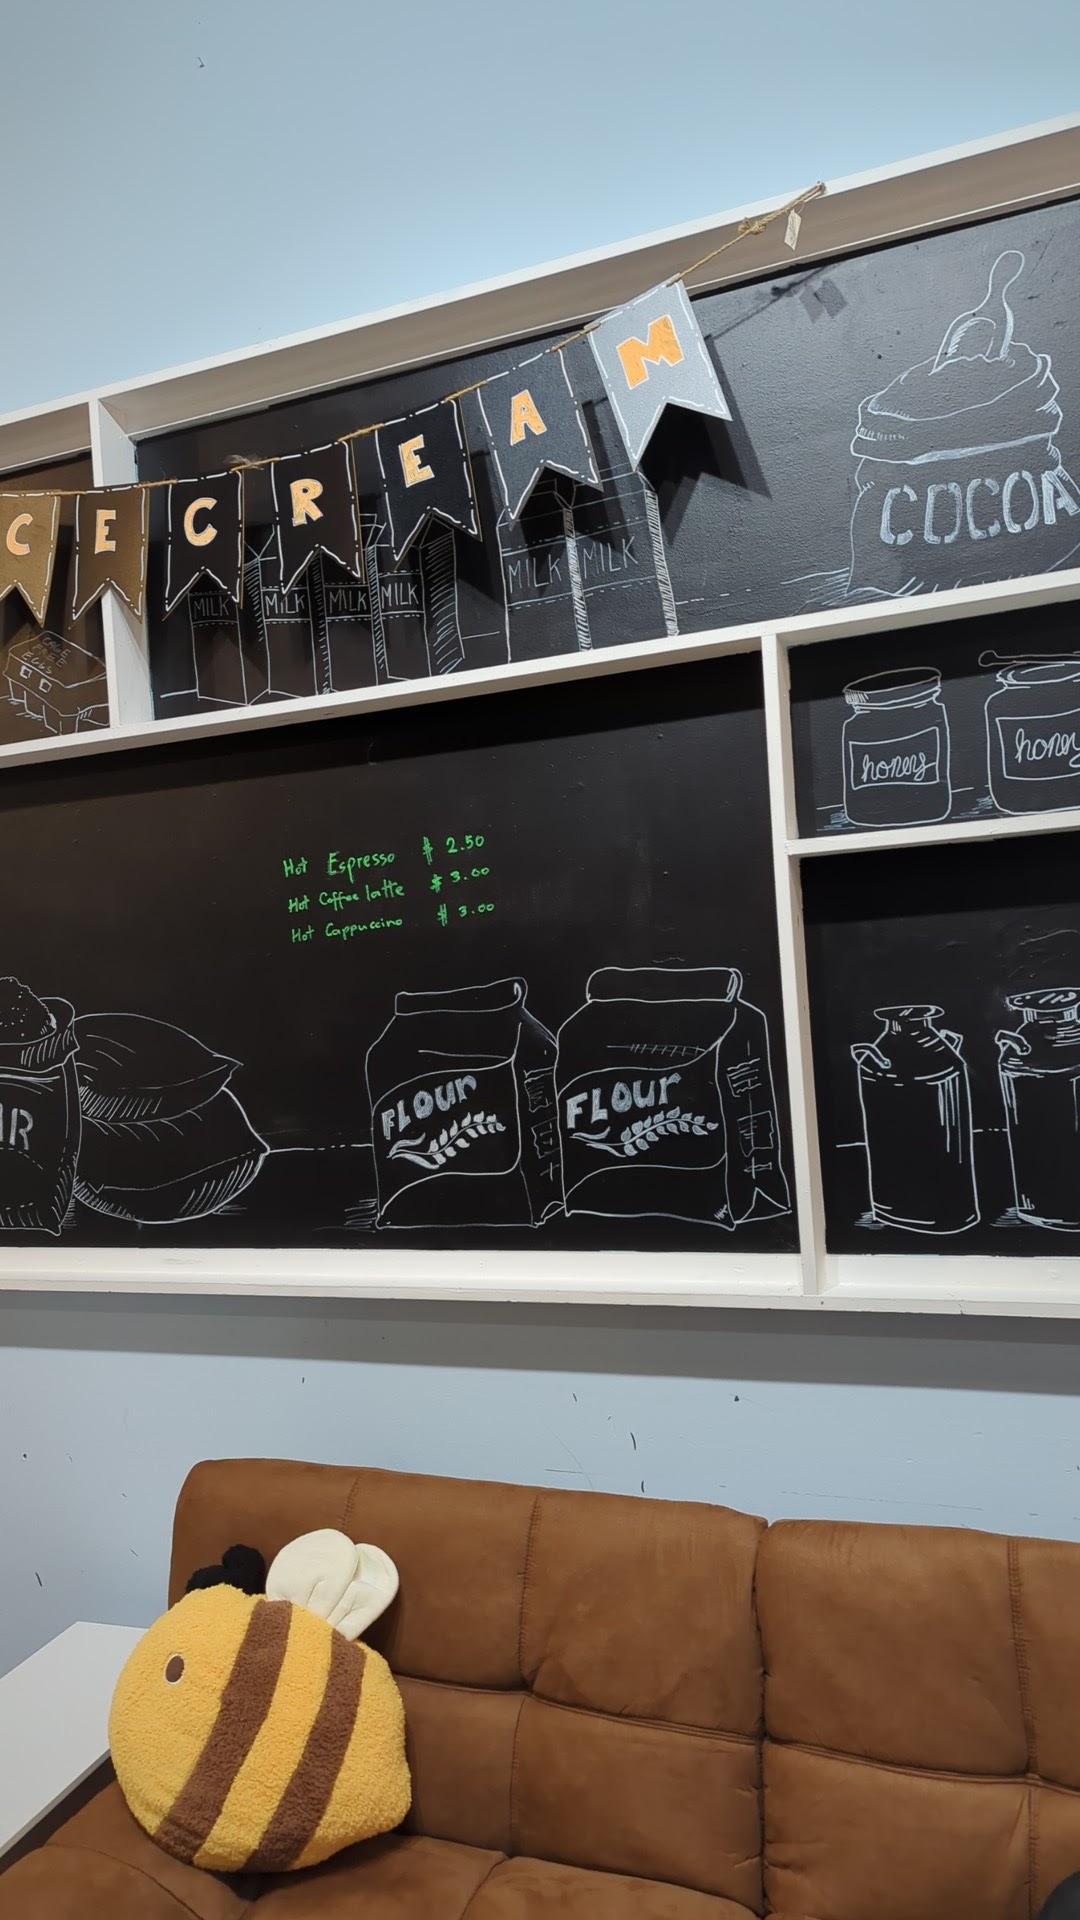 CECREAM
COCOA
MILK MILK MILK MILK MILK MILK
CAGE
FREE
EGGS
honey honey
Hot Espresso $ 2.50
Hot Coffee latte $ 3.00
Hot Cappuccino $ 3.00
FLOUR FLOUR
AR